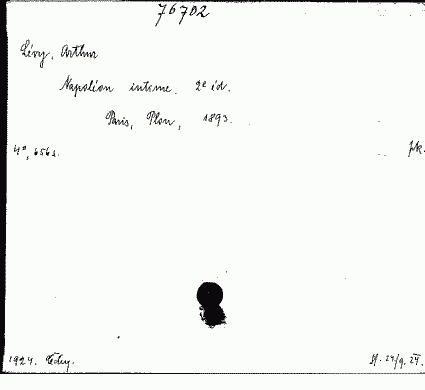 76702
Lévy, Arthur
Napoléon intime. 2e éd.
Paris, Plon, 1893.
4°, 656 s. pk.
1924. 24/9. 24.